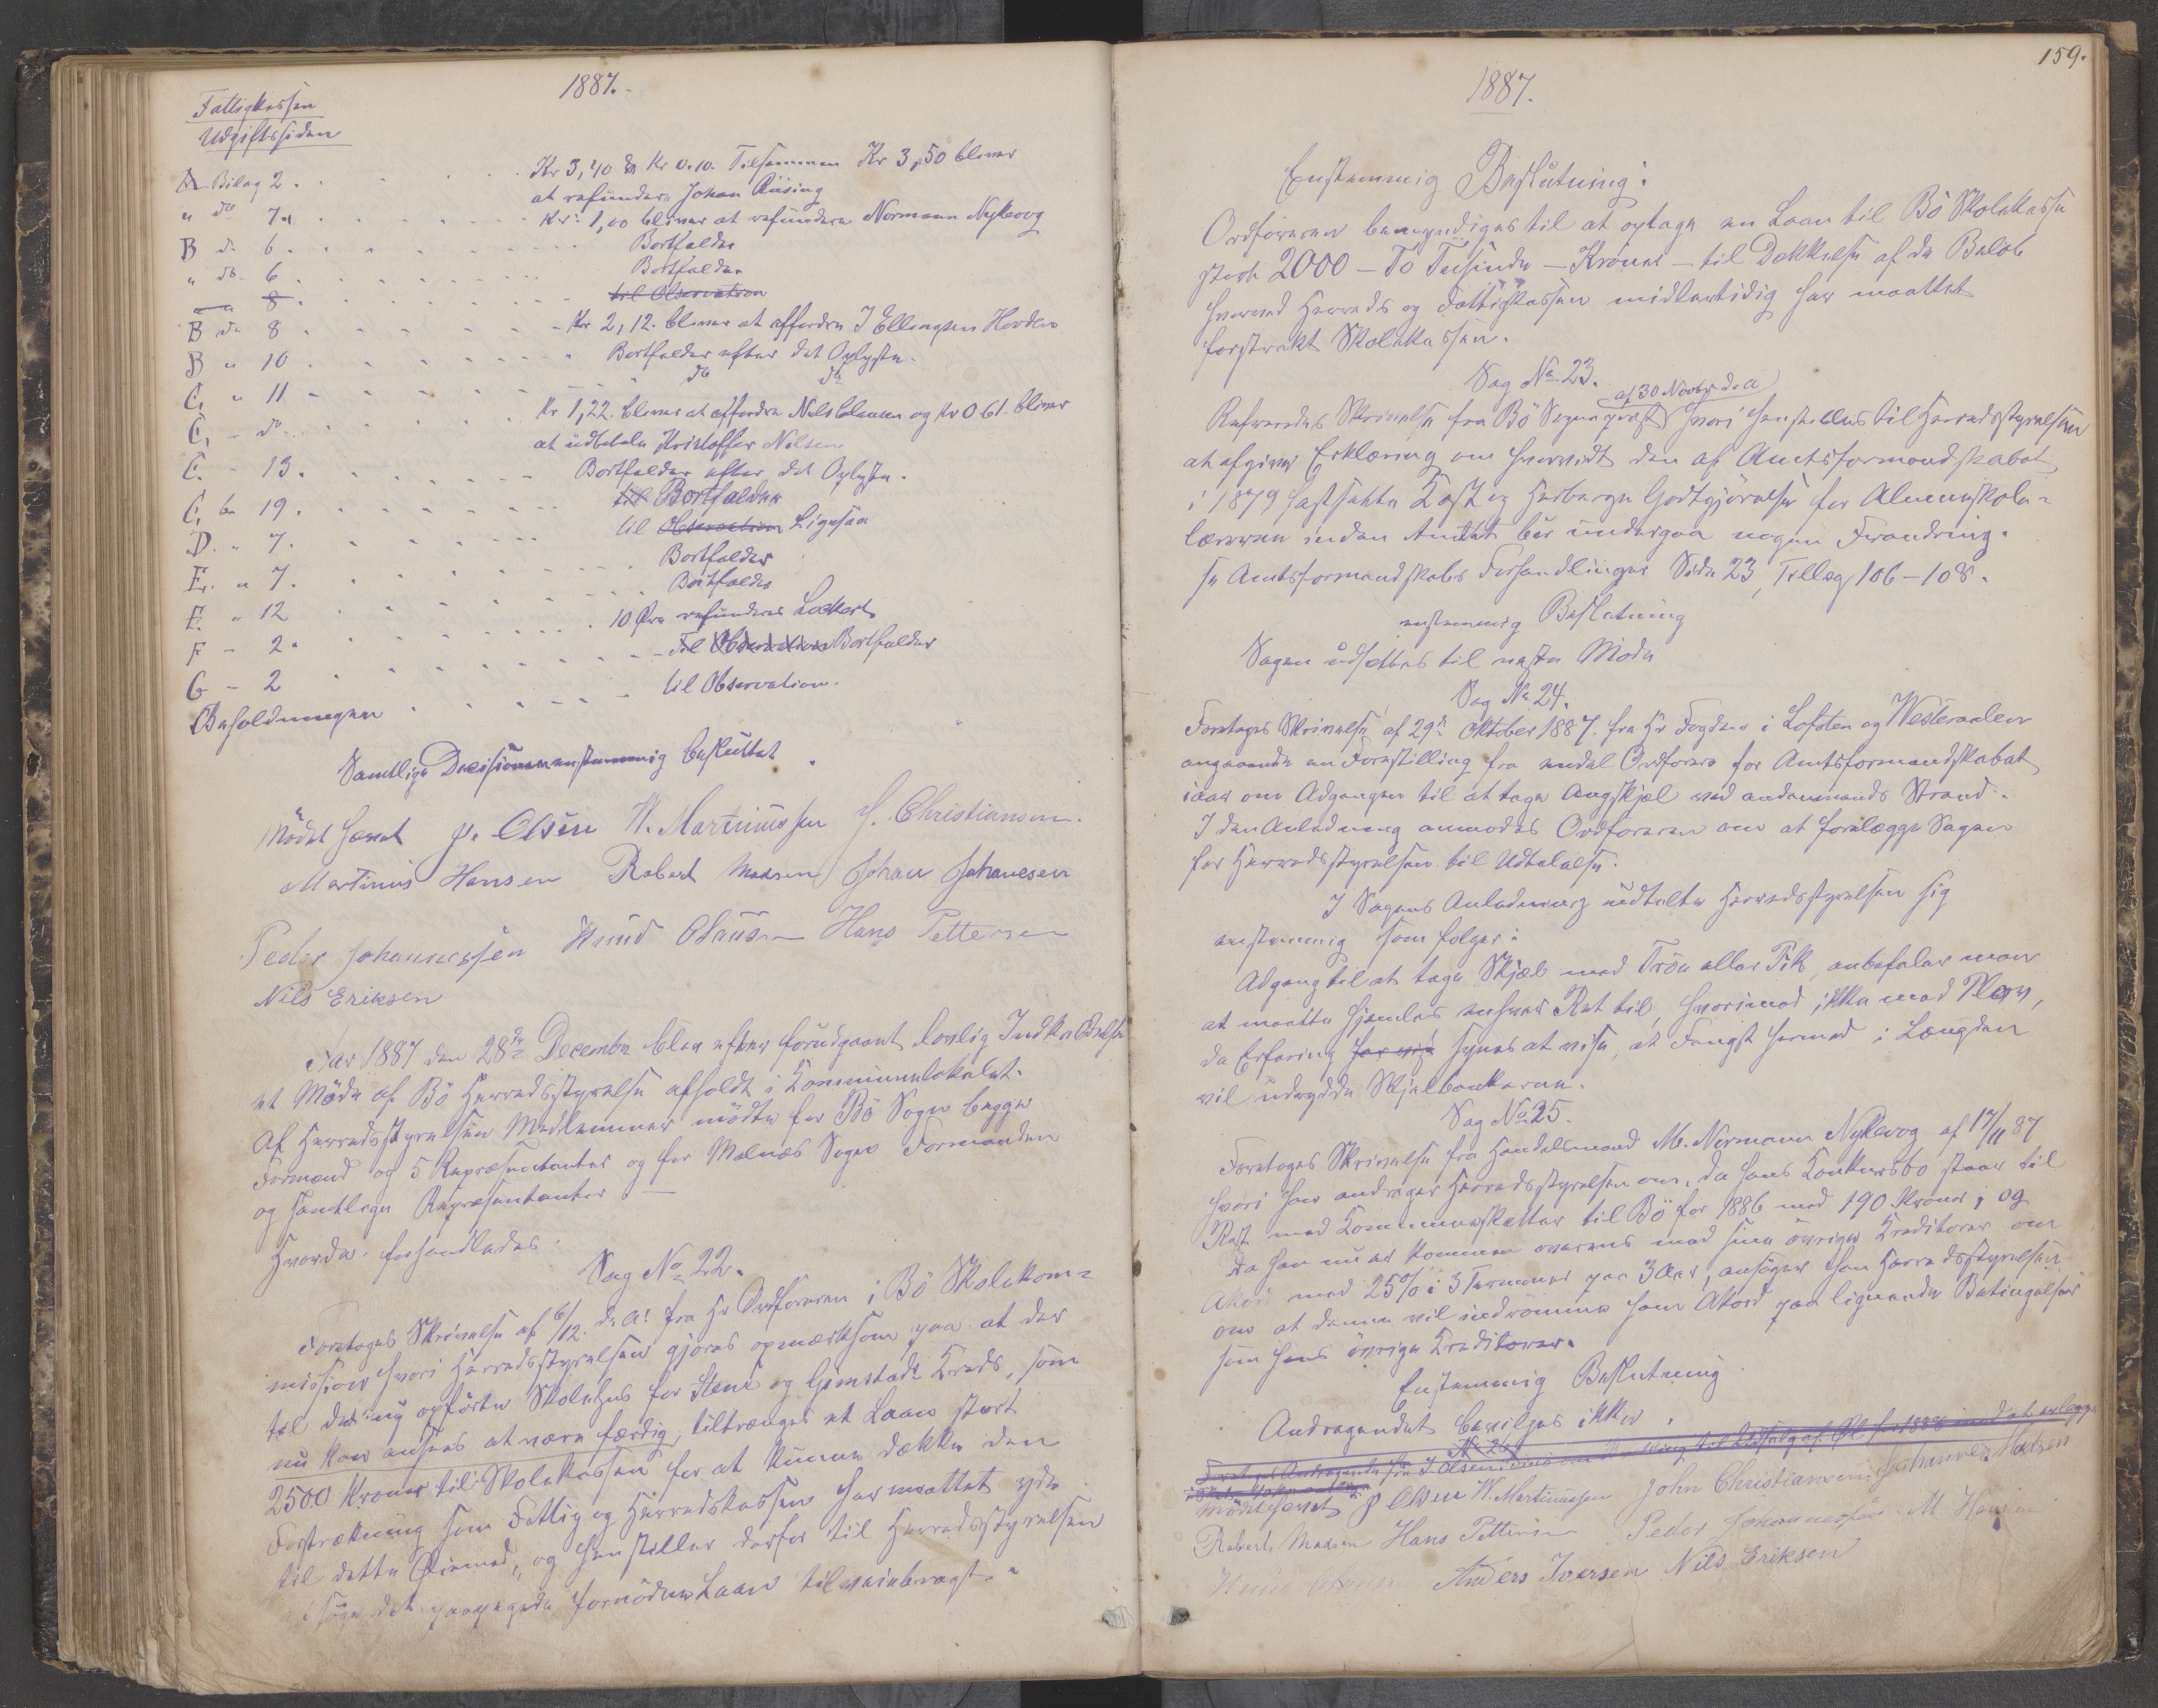 1887.
Fattigkassen
Udgiftssiden
A Bilag 2. Kr 3,40 & Kr 0.10. Tilsammen Kr 3,50 bliver
at refundere Johan Riising
" do 7. Kr: 1,00 bliver at refundere Normann Nykvog
B d. 6. Bortfalder
" do. 6. Bortfalder
" 8. til Observation
B do 8. Kr 2,12. bliver at affordre J Ellingsen Hovden
B " 10. Bortfalder efter det Oplyste.
C, " 11 do do
C, - do Kr 1,22. bliver at affordre Nils Clausen og Kr 0 61 bliver
at udbetale Kristoffer Nilsen
C. - 13. Bortfalder efter det Oplyste.
C, 19. til Bortfalder
D. " 7. til Observation Ligesaa
E. " 7. Bortfalder
E. " 12 Bortfalder
F - 2. 10 Øre refunderes Lockert
G - 2 Til Observation Bortfalder
Beholdningen til Observation.
Samtlige Decisioner enstemmig besluttet.
Mødet hævet P. Olsen W. Martinussen J. Christiansen.
Martinus Hansen Robert Madsen Johan Johanesen
Peder Johannessen Knud Olausen Hans Pettersen
Nils Eriksen
Aar 1887 den 28de Decembr blev efter forudgaaet lovlig Indkaldelse
et Møde af Bö Herredsstyrelse afholdt i Kommunelokalet.
Af Herredsstyrelsen Medlemmer mödte for Bö Sogn begge
Formænd og 5 Repræsentanter og for Malnæs Sogn Formanden
og samtlige Repræsentanter —
Hvorda forhandledes:
Sag No 22.
Foretoges Skrivelse af 6/12. d. A. fra Hr Ordföreren i Bö Skolekom=
mission hvori Herredsstyrelsen gjöres opmærksom paa at der
til det ny opförte Skolehus for Steine og Gimstads Kreds, som
nu kan ansees at være færdig, tiltrænges et Laan stort
2500 Kroner til Skolekassen for at kunne dække den
Forstrækning som Fattig og Herredskassen har maattet yde
til dette Öiemed, og henstiller derfor til Herredsstyrelsen
at söge det paapegede fornödne Laan tilveiebragt."
159.
1887.
Enstemmig Beslutning:
Ordföreren bemyndiges til at optage en Laan til Bö Skolekasse
stort 2000 — To Tusinde — Kroner — til Dækkelse af de Belöb
hvormed Herreds og Fattigkassen midlertidig har maattet
forstrækt Skolekassen.
Sag No 23.
af 30 Novbr d. A
Refereredes Skrivelse fra Bö Sogneprest hvori henstilles til Herredsstyrelsen
at afgive Erklæring om hvorvidt den af Amtsformandskabet
i 1879 fastsatte Kost og Herberge Godtgjörelse for Almueskole=
lærerne inden Amtet bör undergaa nogen Forandring.
se Amtsformandskabs Forhandlinger Side 23, Tillæg 106–108.
enstemmig Beslutning
Sagen udsættes til næste Möde
Sag No 24.
Foretoges Skrivelse af 29de Oktober 1887 fra Hr Fogden i Lofoten og Westeraalen
angaaende en Forestilling fra endel Ordförere for Amtsformandskabet
iaar om Adgangen til at tage Angskjæl ved andenmands Strand.
I den Anledning anmodes Ordföreren om at forelægge Sagen
for Herredsstyrelsen til Udtalelse.
I Sagens Anledning udtalte Herredsstyrelsen sig
enstemmig som fölger:
Adgang til at tage Skjæl med Tröe eller Pik, anbefaler man
at maatte hjemles enhver Ret til, hvorimod ikke med Plov,
da Erfaring har vist synes at vise, at Fangst hermed i Længden
vil udrydde Skjælbankerne.
Sag No 25.
Foretoges Skrivelse fra Handelsmand M. Normann Nykvog af 17/11 87
hvori han andrager Herredsstyrelsen om, da hans Konkursbo staar til
Rest med Kommuneskatter til Bö for 1886 med 190 Kroner, og
da han nu er kommen overens med sine övrige Kreditorer om
Akord med 25% i 3 Terminer paa 3 Aar, ansöger han Herredsstyrelsen
om at denne vil indrömme ham Akord paa lignende Betingelser
som hans övrige Kreditorer.
Enstemmig Beslutning
Andragendet bevilges ikke.
No 26
Mödet hævet P Olsen W. Martinussen John Christiansen Johannes Madsen
Robert Madsen Hans Pettersen Peder Johannessen M Hansen
Knud Olausen Anders Iversen Nils Eriksen